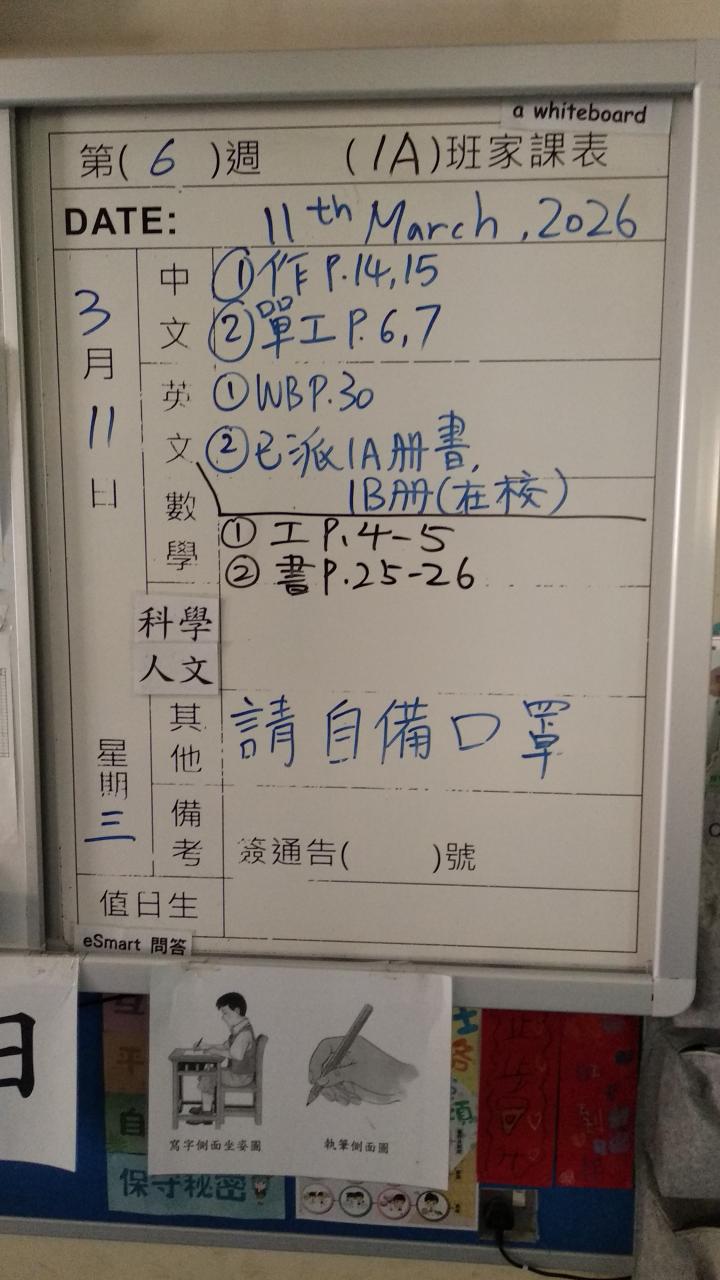 a whiteboard
第( 6 )週 (1A)班家課表
DATE: 11th March, 2026
3月11日
星期三
中文
①作 P.14,15
②單工 P. 6,7
英文
①WB P.30
②已派1A冊書,
1B冊(在校)
數學
① 工 P. 4-5
② 書 P.25-26
科學
人文
其他
請自備口罩
備考
簽通告( )號
值日生
eSmart 問答
日
寫字側面坐姿圖
執筆側面圖
保守秘密